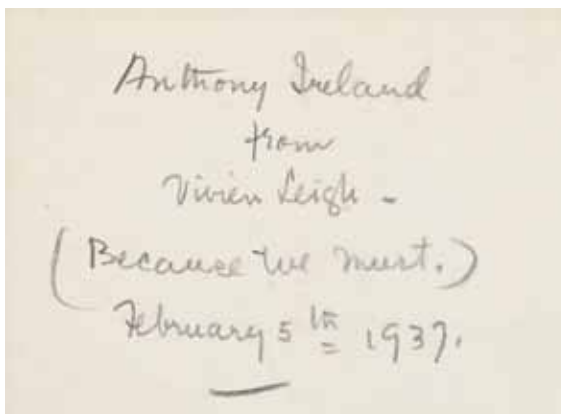 Anthony Ireland
from
Vivien Leigh -
(Because We Must.)
February 5th 1937.